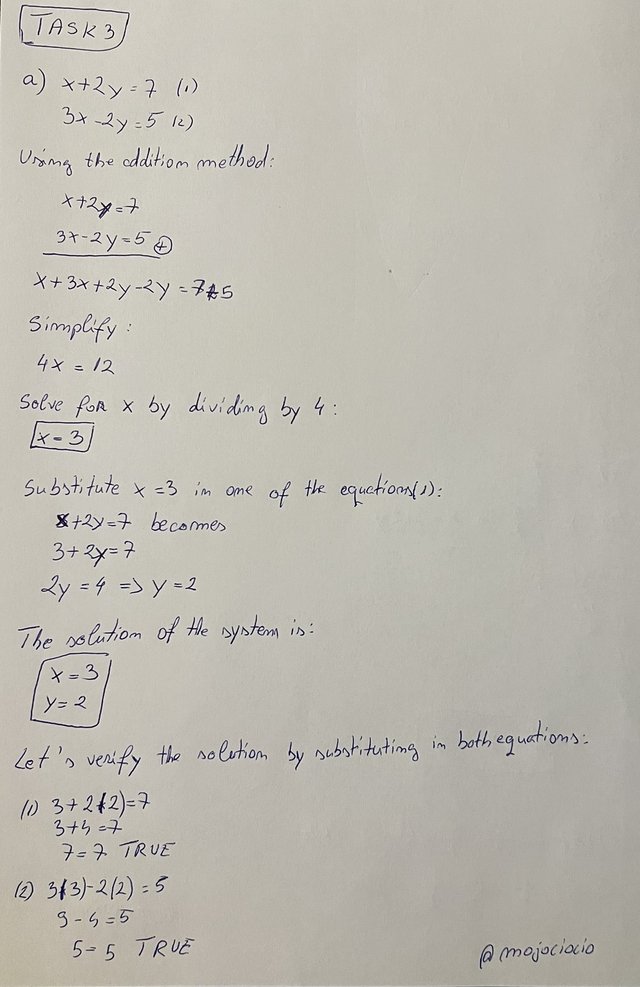 TASK 3
a) x+2y=7 (1)
3x-2y=5 (2)
Using the addition method:
x+2y=7
3x-2y=5 ⊕
x+3x+2y-2y=7+5
Simplify:
4x = 12
Solve for x by dividing by 4:
x=3
Substitute x=3 in one of the equctions(1):
x+2y=7 becomes
3+2y=7
2y=4 => y=2
The solution of the system is:
x=3
y=2
Let's verify the solution by substituting in both equations:
(1) 3+2(2)=7
3+4=7
7=7 TRUE
(2) 3(3)-2(2)=5
9-4=5
5=5 TRUE
@mojociocio